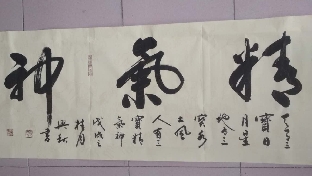 精氣神
天有三
寶日
月星
地有三
寶水
火風
人有三
寶精
氣神
戊戌之
桂月
興林
書